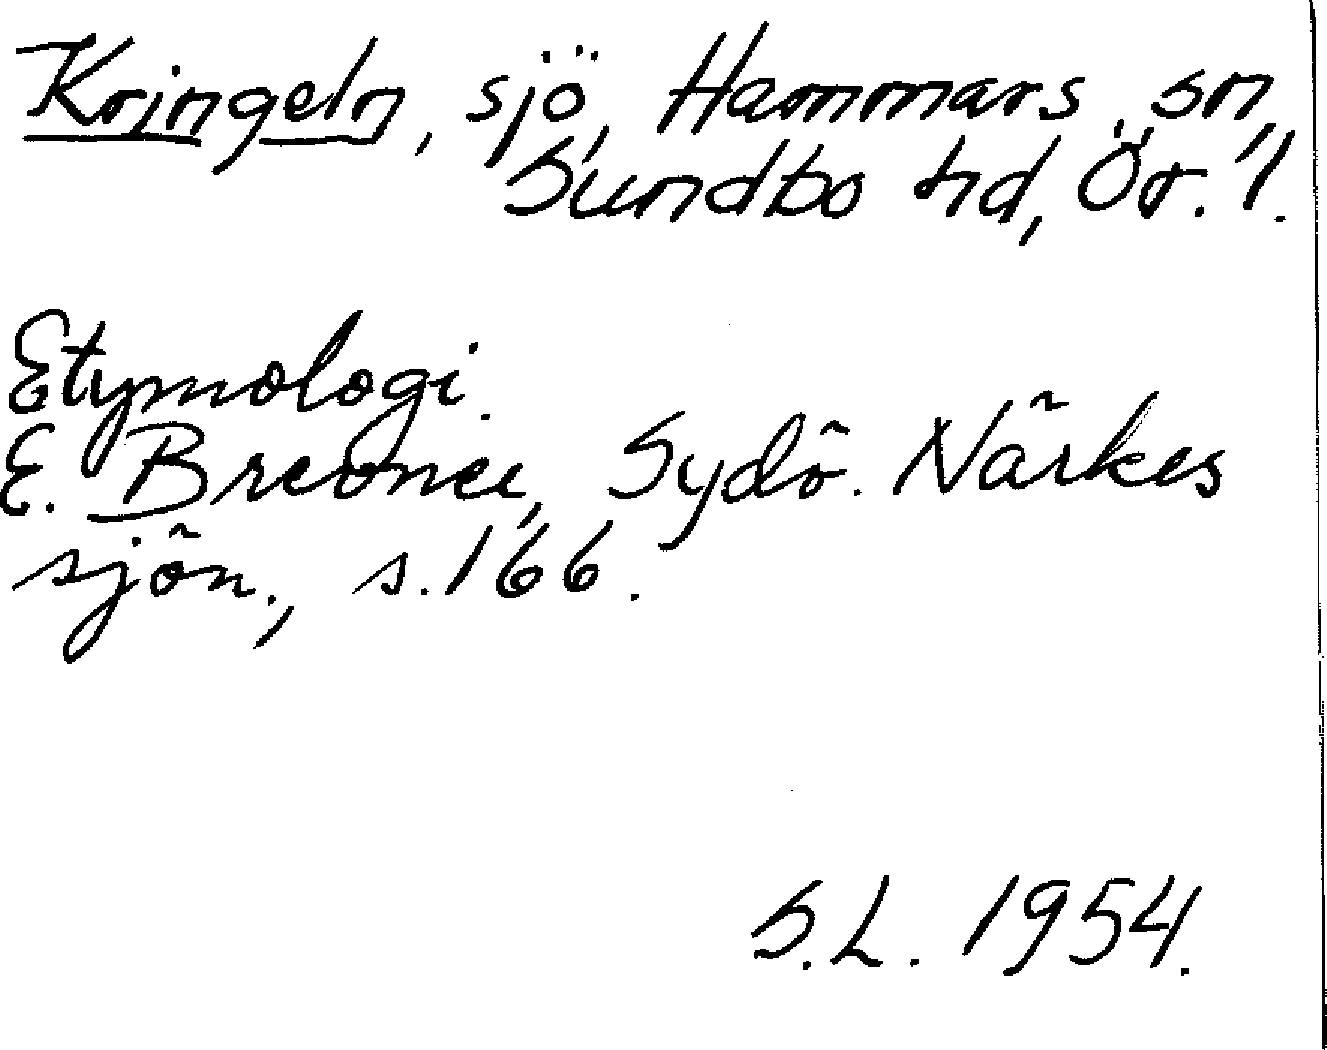 Kringeln, sjö, Hammars sn,
Sundbo hd, Ör. l.
Etymologi.
E. Brevner, Sydö. Närkes
sjön., s. 166.
S.L. 1954.